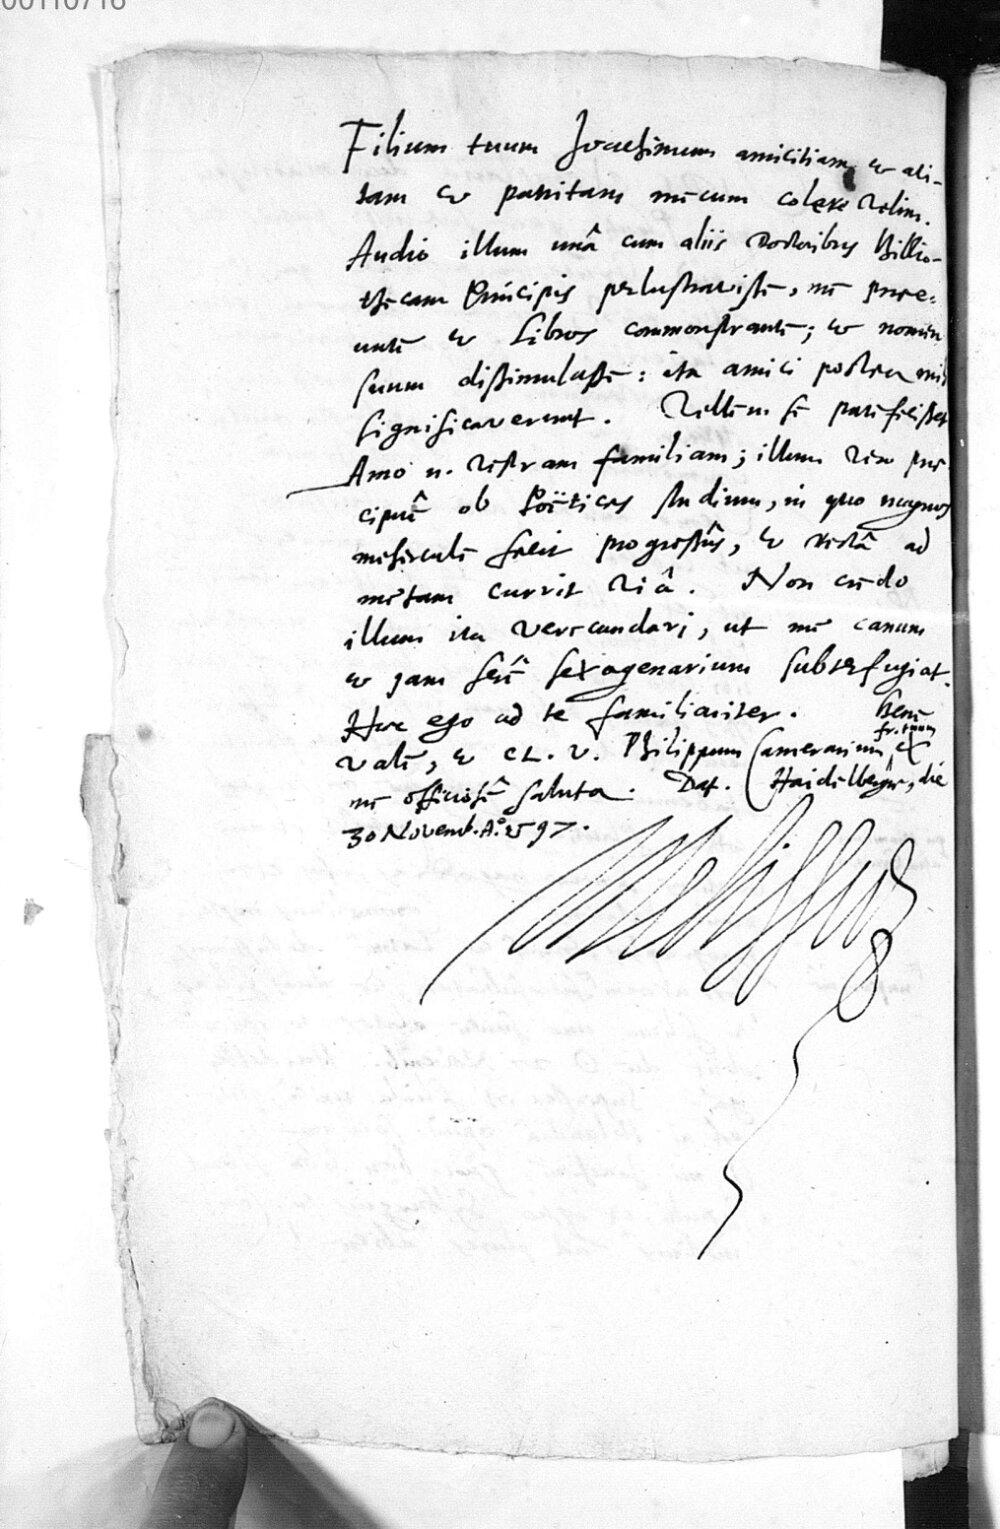 00110716
Filium tuum Joachimum amicitiam et avi-
tam et patritam mecum colere velim.
Audio illum unâ cum aliis Doctoribus Biblio-
thecam Principis perlustravisse, me præe-
unte et Libros commonstrante; et nomen
suum dissimulasse: ita amici postea mihi
significaverunt. Vellem se patefecisset
Amo n. vestram familiam; illum vero præ-
cipuè ob Poëtices studium, in quo magnos
mehercule fecit progressûs, et rectâ ad
metam currit viâ. Non credo
illum ita verecundari, ut me canum
et jam ferè sexagenarium subterfugiat.
Hæc ego ad te familiariter. bene
vale, et CL. V. Philippum Camerarium fr. tuum ex
me officiosè saluta. Dat. Haidelbergæ, die
30 Novemb. Aº. 1597.
Melissus